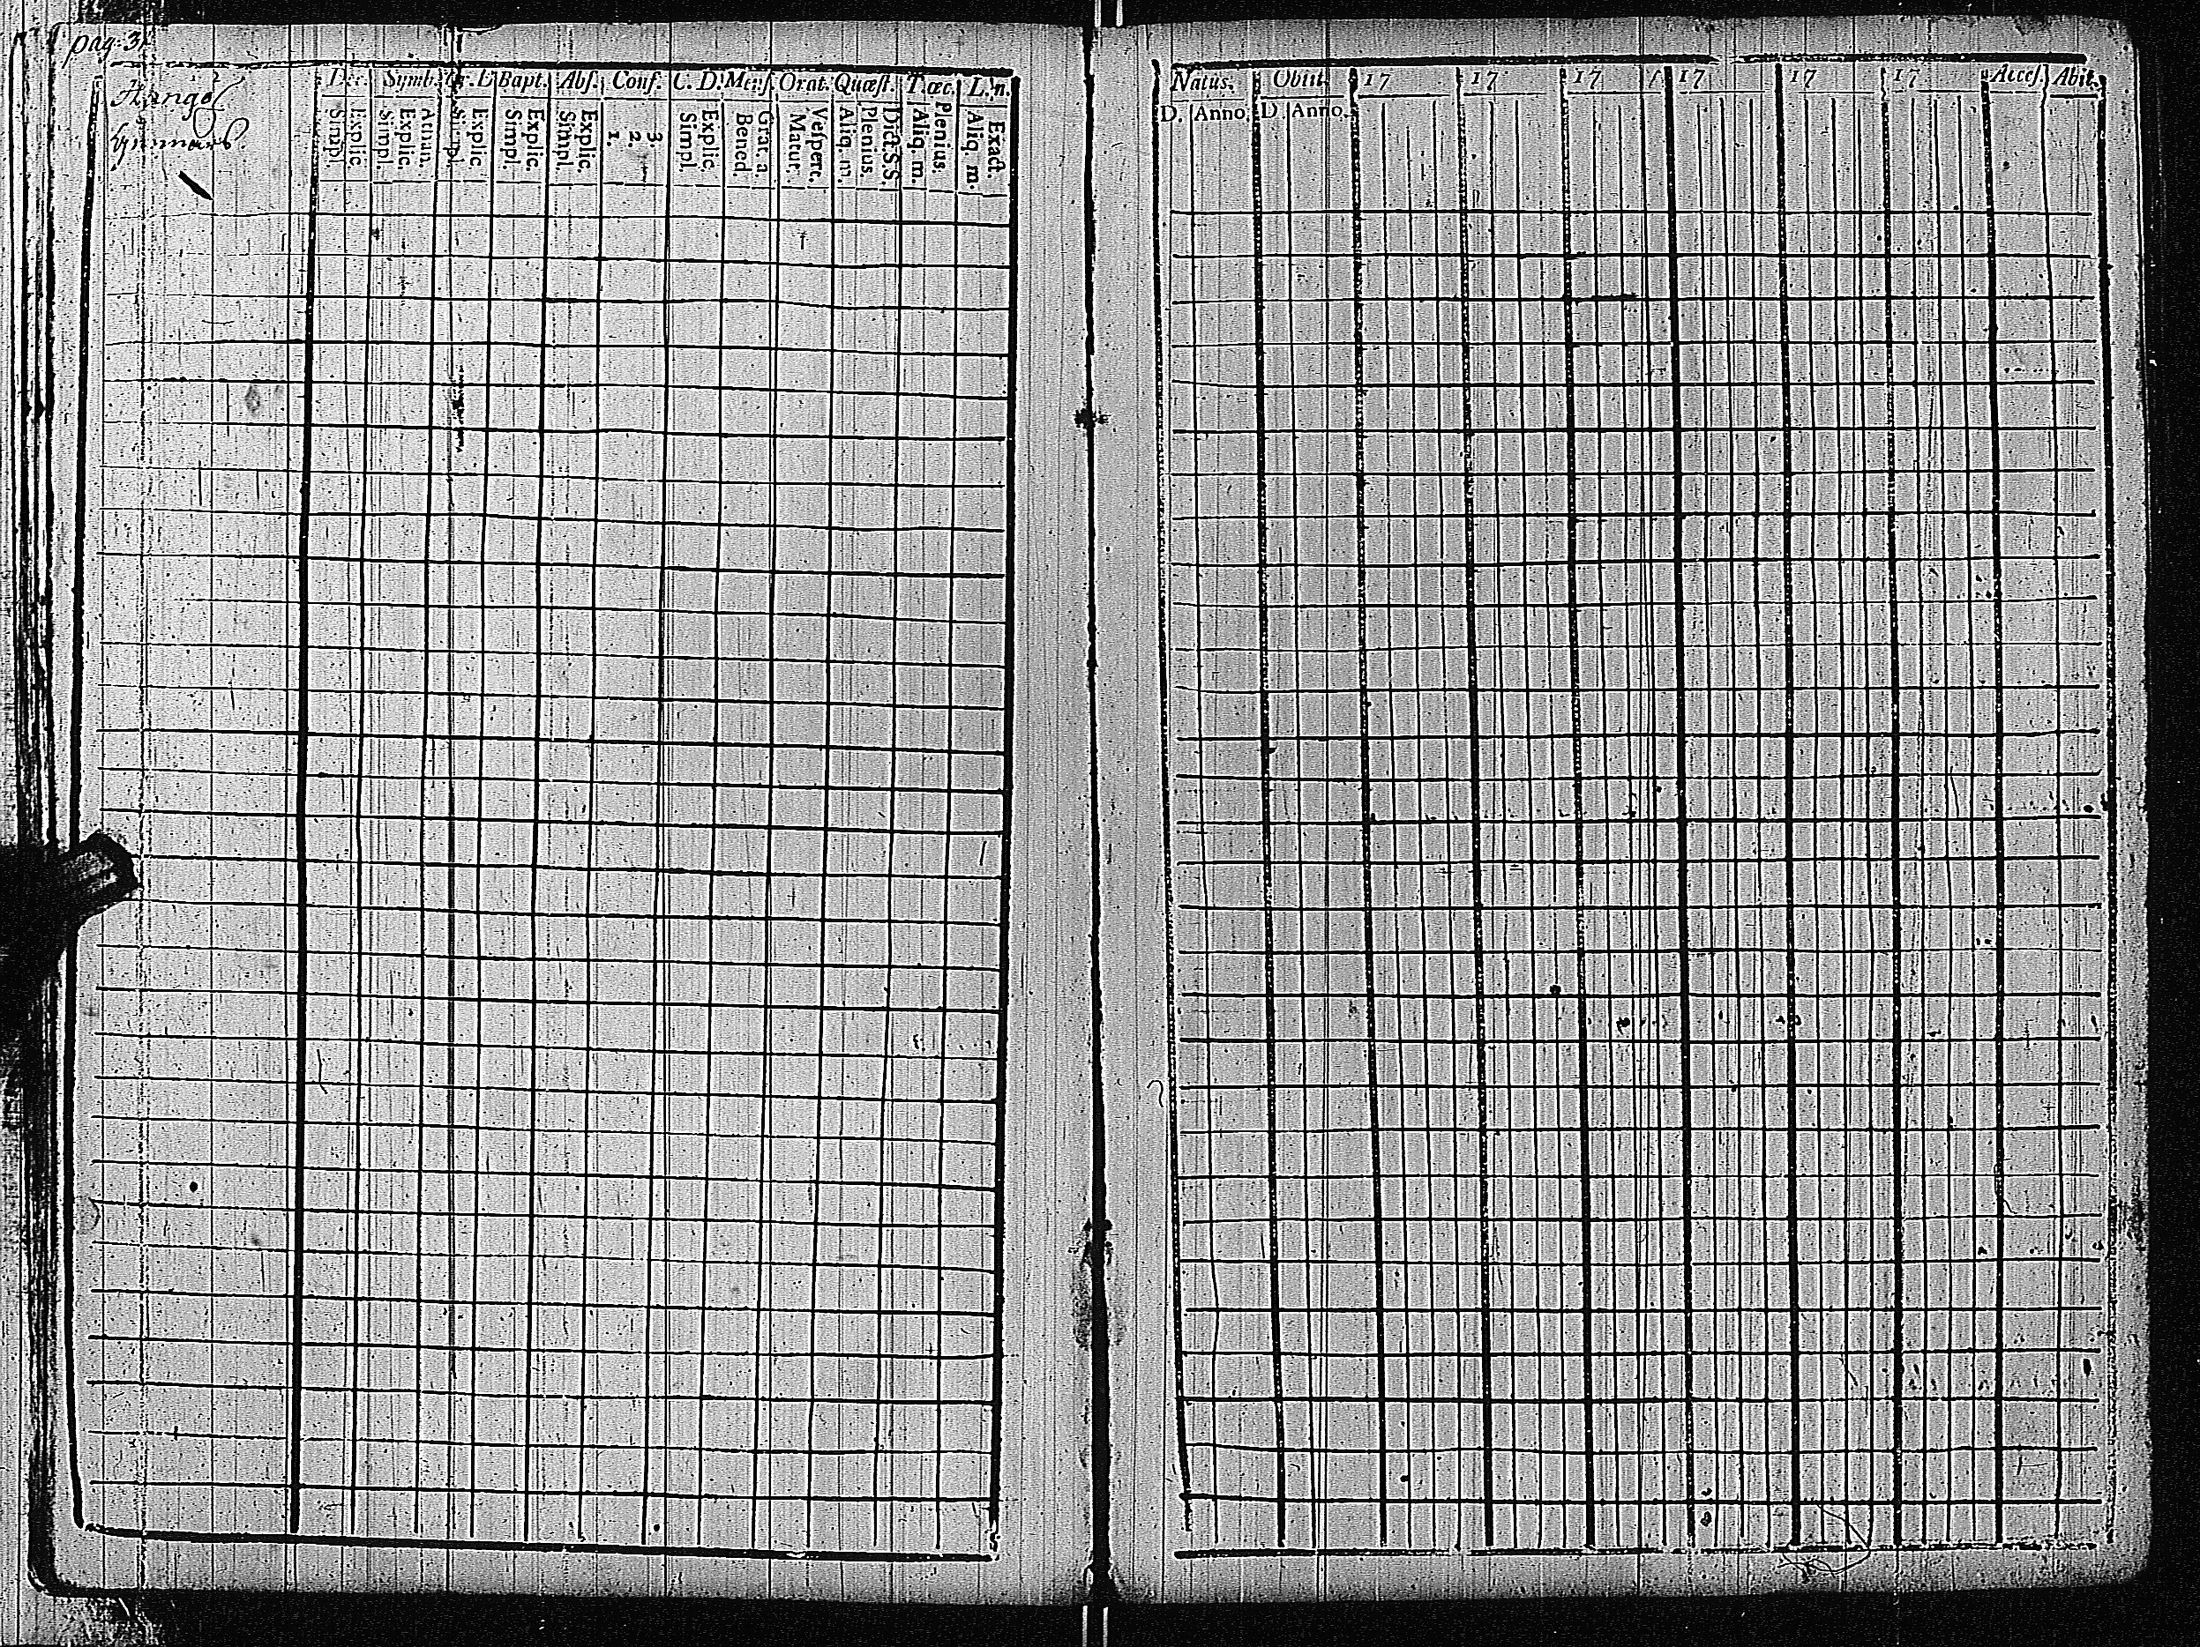 pag: 3.
Dec. Symb. Or. D. Bapt. Abſ. Conf. C. D. Menſ. Orat. Quæſt. T. œc. L. n.
Simpl. Explic. Simpl. Explic. Athan. Simpl. Explic. Simpl. Explic. Simpl. Explic. 1. 2. 3. Simpl. Explic. Bened. Grat. a. Matur. Veſpert. Aliq. m. Plenius. Dict. S. S. Aliq. m. Plenius. Aliq. m. Exact.
Natus. Obiit. 17 17 17 17 17 17 Acceſ. Abit.
D. Anno. D. Anno.